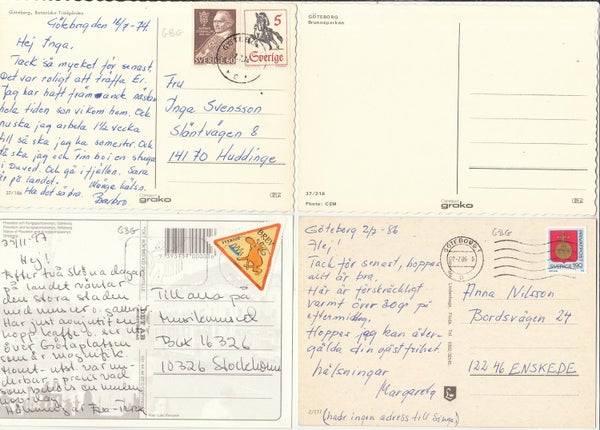 Göteborg, Botaniska Trädgården
Göteborg den 16/7-74.
GBG
Hej Inga.
Tack så mycket för senast.
Det var roligt att träffa Er.
Jag har haft främande nästan
hela tiden sen vi kom hem. Och
nu ska jag arbeta 1½ vecka
till så ska jag ha semester. Och
då ska jag och Finn bo i en stuga
i Duved. Och gå i fjällen. Sara
är på landet.
Många hälsn.
Ha det så bra.
Barbro
SVERIGE 60
5
Sverige
GÖTEBORG
Fru
Inga Svensson
Släntvägen 8
141 70 Huddinge
37/186
grako
GÖTEBORG
Brunnsparken
37/218
Photo: CEM
grako
29/11-97
GBG
Hej!
Efter två sköna dagar
på landet väntar
den stora staden
med museer o.
Har just avnjutit en
kopp kaffe
över Götaplatsen
som är magnifik.
Konst-utst. var un-
derbar
SVERIGE
BREV
Till alla på
Musikmuseet
Box 16326
10326 Stockholm
Göteborg 2/7-86
GBG
Hej!
Tack för senast, hoppas
allt är bra.
Här är förskräckligt
varmt över 30gr på
eftermiddan.
Hoppas jag kan åter-
gälda din gästfrihet.
hälsningar
Margareta
(hade ingen adress till Sinea)
GÖTEBORG
SVERIGE
Anna Nilsson
Bordsvägen 24
122 46 ENSKEDE